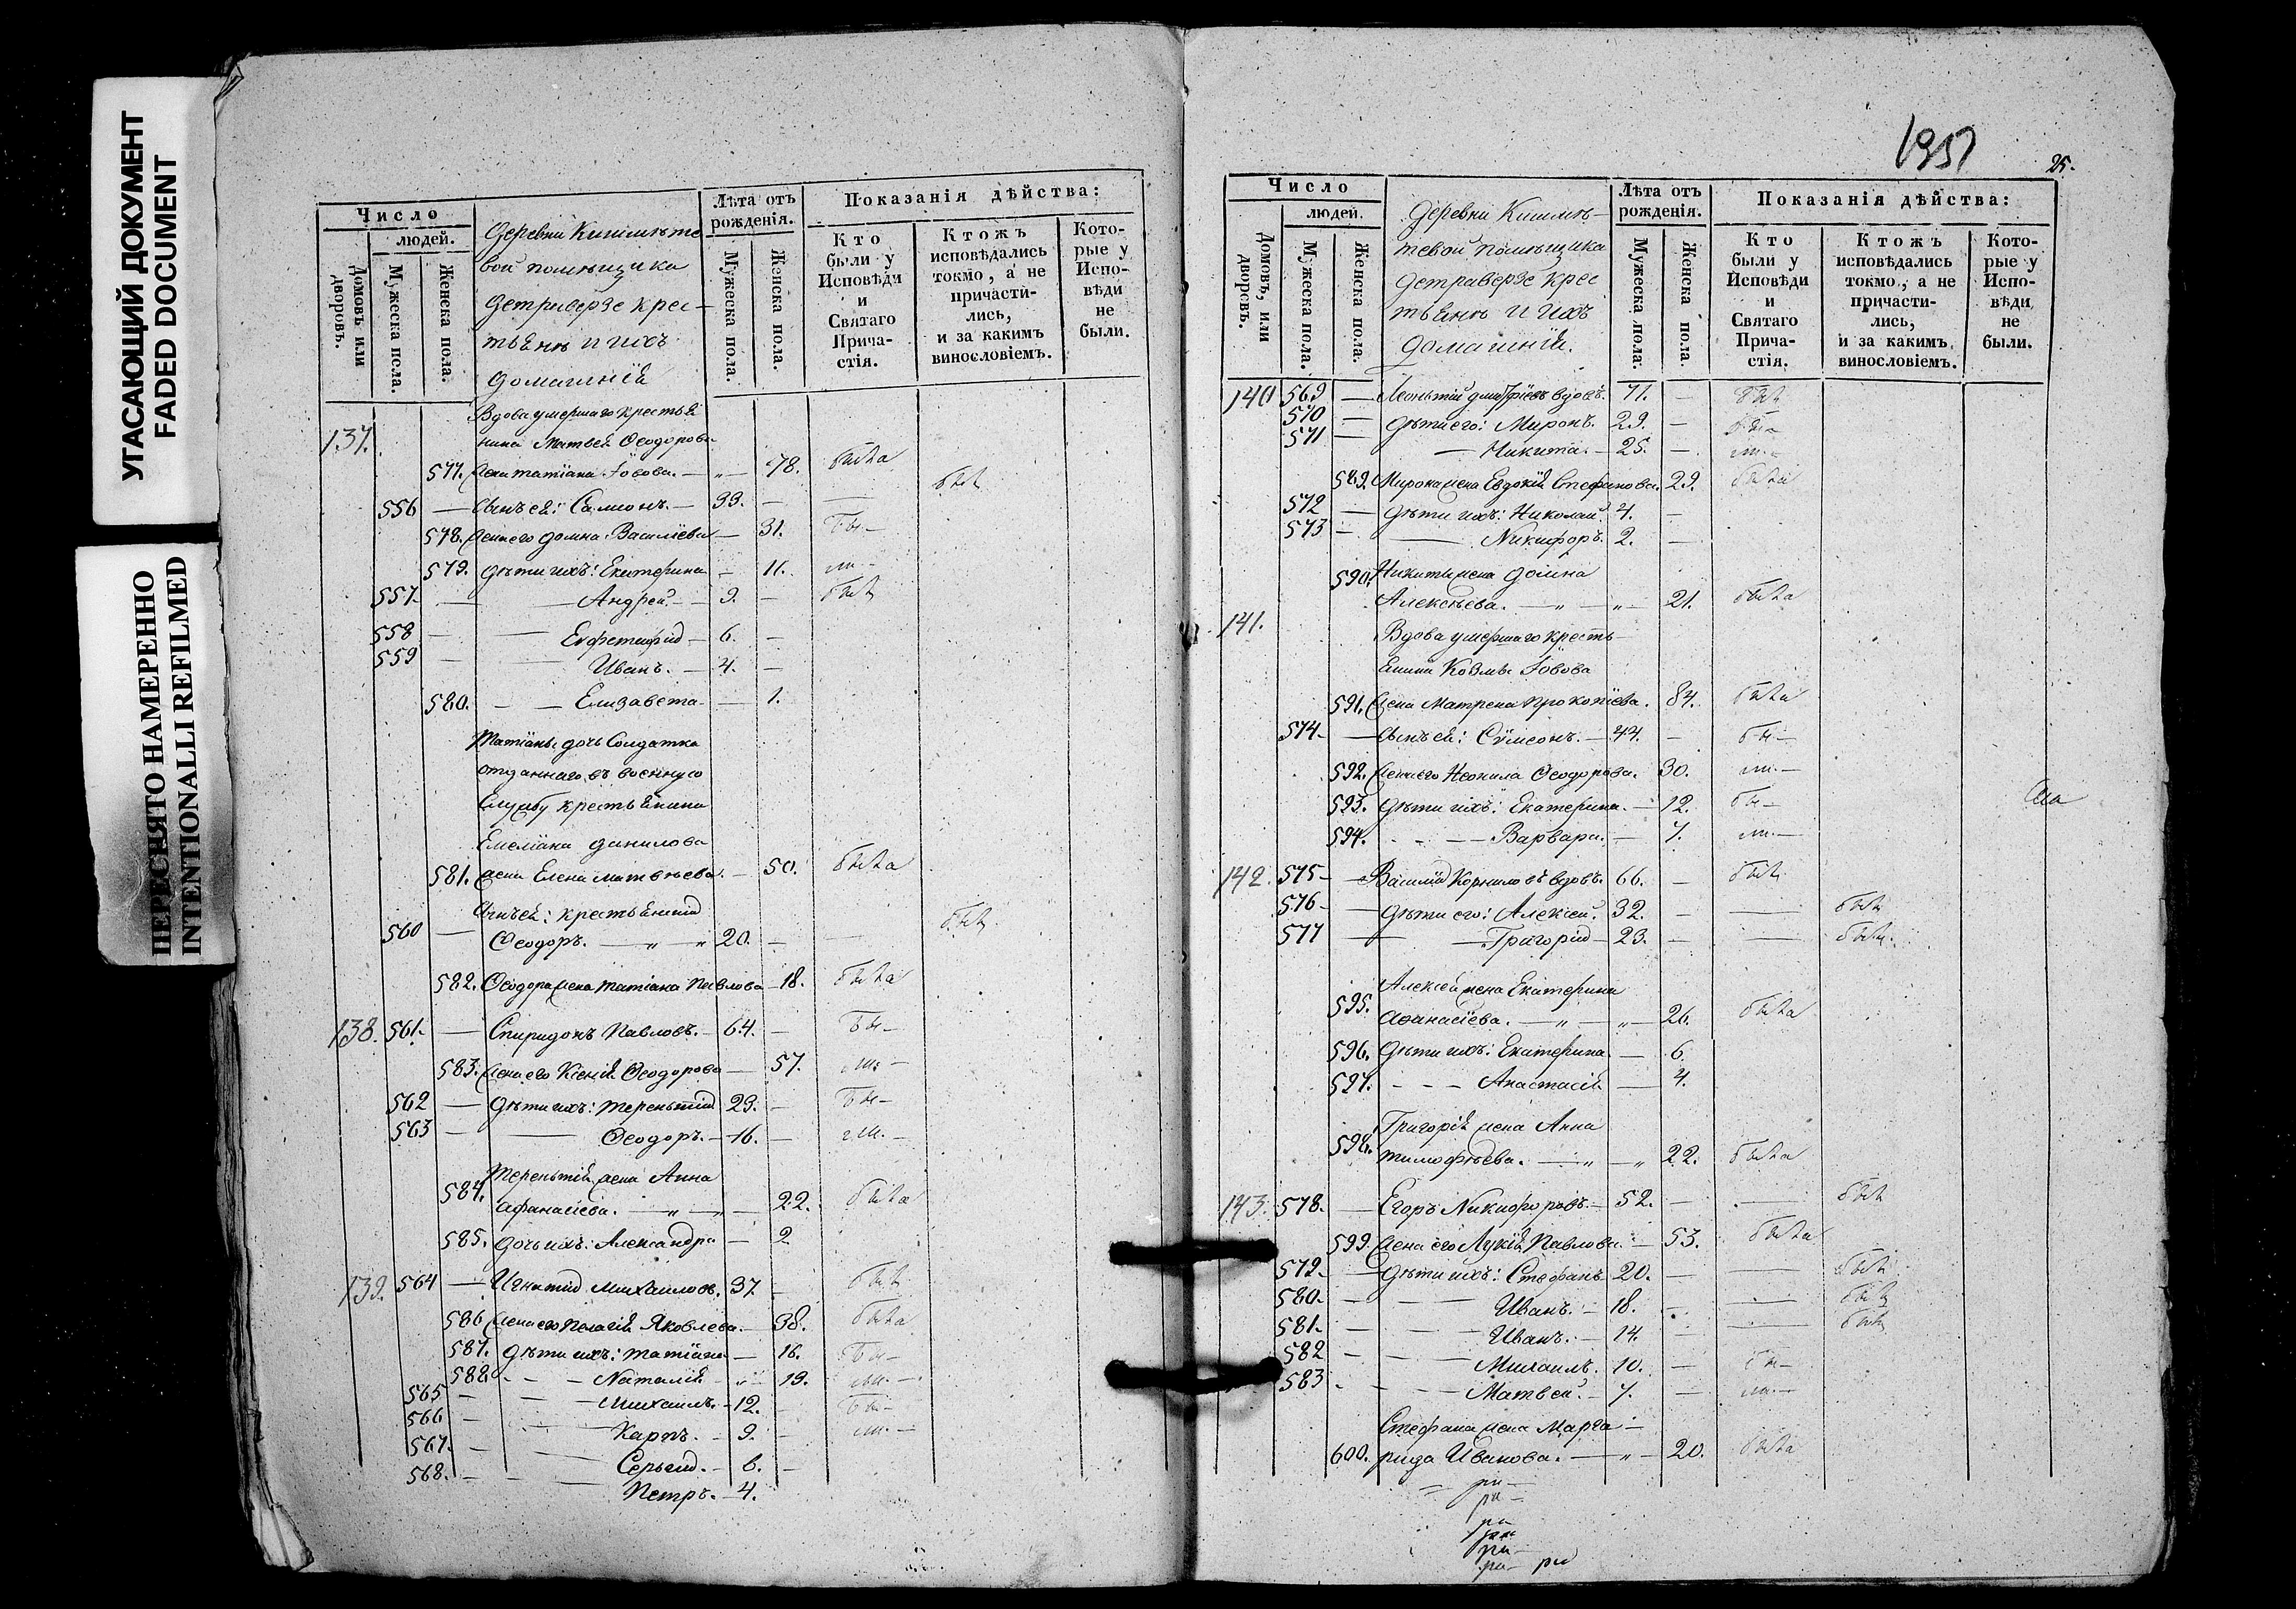 УГАСАЮЩИЙ ДОКУМЕНТ
FADED DOCUMENT
ПЕРЕСНЯТО НАМЕРЕННО
INTENTIONALLI REFILMED
Число
людей.
Домовъ или дворовъ.
Мужеска пола.
Женска пола.
Деревни
вой помѣщика
Детраверзе крес-
тьянъ и ихъ
домашнiй
Лѣта отъ рожденiя.
Мужеска пола.
Женска пола.
Показанiя дѣйства:
Кто были у Исповѣди и Святаго Прича-стiя.
Ктожъ исповѣдались токмо, а не причасти-лись, и за какимъ винословiемъ.
Кото-рые у Испо-вѣди не были.
137. Вдова умершаго крестья
нина Матвея Ѳеодорова
577. жена Татiана Iовова. — „ — 78. была
556 — сынъ ея: Самсонъ. — 33. — — былъ
578. жена его Домна Василiева — 31. бы-
579. дѣти ихъ: Екатерина — 11. ли-
557. — — Андрей. — 9. — былъ
558 — — 6. —
559 — — Иванъ. — 4. —
580. — — Елизавета — 1.
Татiаны дочь солдатка
отданнаго въ военную
службу крестьянина
Емелiана Данилова
581. жена Елена Матвѣева — 50. была
сынъ ея: крестьянинъ
560 — Ѳеодоръ. — „ — „ 20. — — былъ
582. Ѳеодора жена Татiана Павлова — 18. была
138. 561. — Спиридонъ Павловъ. — 64. — бы-
583. жена его Ксенiя Ѳеодорова — 57. ли-
562 — дѣти ихъ: Терентiй 29. — бы-
563 — — Ѳеодоръ. — 16. — ли. —
Терентiя жена Анна
584. Афанасiева. — „ — 22. была
585. дочь ихъ: Александра — 2
139. 564 — Игнатiй Михаиловъ. 37 — былъ
586 жена его Пелагiя Яковлева. — 38. была
587. дѣти ихъ: Татiана — 16. бы-
588. - - - Наталiя - „ 13. ли. -
565 - - - Михаилъ. - 12. - бы-
566 - - Карпъ. - 9. - ли. -
567. - - Сергiй. - 6. -
568. - - - Петръ. - 4.
1951
25.
Число
людей.
Домовъ, или дворовъ.
Мужеска пола.
Женска пола.
Деревни
тевой помѣщика
Детраверзе крес
тьянъ и ихъ
домашнiя.
Лѣта отъ рожденiя.
Мужеска пола.
Женска пола.
Показанiя дѣйства:
Кто были у Исповѣди и Святаго Прича-стiя.
Ктожъ исповѣдались токмо, а не причасти-лись, и за какимъ винословiемъ.
Кото-рые у Испо-вѣди не были.
140 569 — Леонтiй Дмитрiевъ вдовъ. 71. — былъ
570 — дѣти его: Миронъ. 29. — бы-
571 — — Никита. — 25. — ли. -
589. Мирона жена Евдокiя Стефанова. 29. была
572 — дѣти ихъ: Николай. 4. —
573 — — Никифоръ. 2. —
Никиты жена Домна
590. Алексѣева. — „ — „ — 21. была
141. Вдова умершаго кресть-
янина Козмы Iовова
591. жена Матрена Прокопiева. 84. была
574 — сынъ ея: Сvмеонъ. — 44. — бы-
592. жена его Неонила Ѳеодорова. 30. ли. —
593. дѣти ихъ: Екатерина. — 12. бы-
594. - - - Варвара. — 7. ли. —
142. 575 — Василiй Корниловъ вдовъ. 66. — былъ
576 — дѣти его: Алексiй. 32. — — былъ
577 — — Григорiй — 23. — — былъ.
Алексiя жена Екатерина
595. Аѳанасiева. — „ — „ — 26. была
596. дѣти ихъ: Екатерина. — 6.
597. - - - Анастасiя — 4.
Григорiя жена Анна
598. Тимоѳѣева. — „ — „ 22. была
143. 578. — Егоръ Никифоровъ. — 52. — — былъ
599. жена его Лукiя Павлова — 53. была
579 — дѣти ихъ: Стефанъ 20. — — былъ
580 - - - Иванъ. — 18. - — былъ
581 - - - Иванъ. — 14. — — былъ
582 - - - Михаилъ. 10. — бы-
583 - - - Матвей. — 7. — ли. —
Стефана жена Марга-
600. рида Иванова. — „ — 20. была